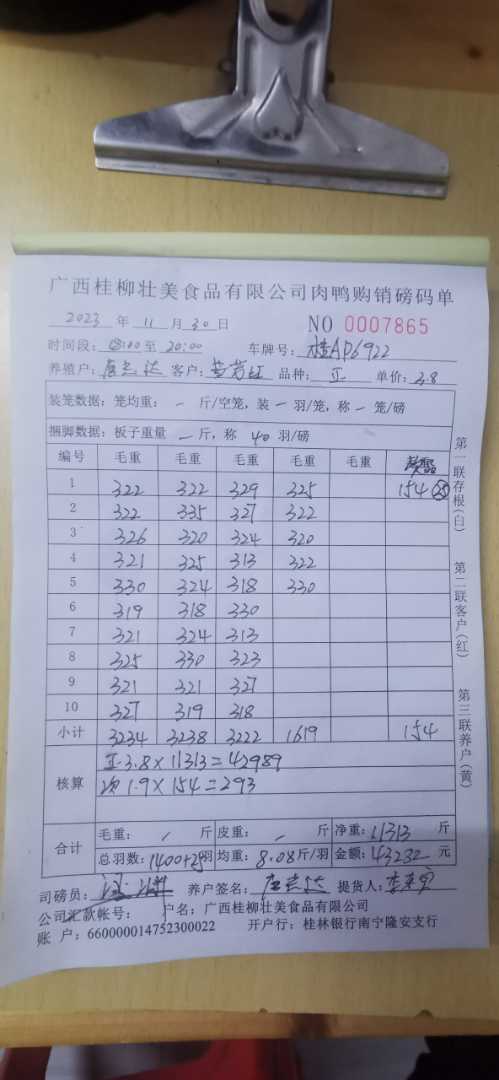 广西桂柳壮美食品有限公司肉鸭购销磅码单
2023 年 11 月 30 日 NO 0007865
时间段: 8:00 至 20:00 车牌号: 桂AP6922
养殖户: 客户: 品种: 正 单价: 3.8
装笼数据: 笼均重: 一 斤/空笼, 装 一 羽/笼, 称 一 笼/磅
捆脚数据: 板子重量 一 斤, 称 40 羽/磅
编号 毛重 毛重 毛重 毛重 毛重
1 322 322 329 325 154 25
2 322 335 327 322
3 326 320 324 320
4 321 325 313 322
5 330 324 318 330
6 319 318 330
7 321 324 313
8 325 330 323
9 321 321 327
10 327 319 318
小计 3234 3238 3222 1619 154
核算
正 3.8 × 11313 = 42989
次 1.9 × 154 = 293
合计
毛重: / 斤 皮重: 一 斤 净重: 11313 斤
总羽数: 1400+25 羽 均重: 8.08 斤/羽 金额: 43282 元
司磅员: 养户签名: 提货人:
公司汇款帐号: 户名: 广西桂柳壮美食品有限公司
账 户: 660000014752300022 开户行: 桂林银行南宁隆安支行
第一联存根(白)
第二联客户(红)
第三联养户(黄)